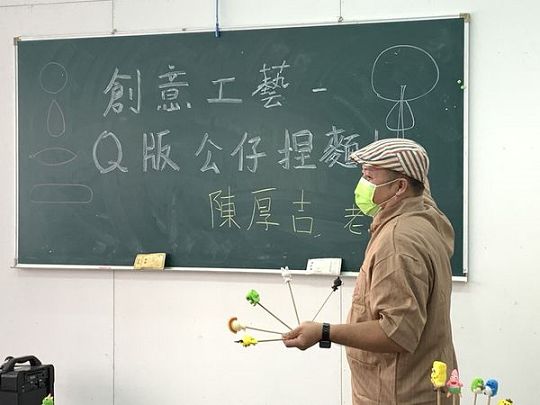 創意工藝-
Q版公仔捏麵
陳厚吉 老